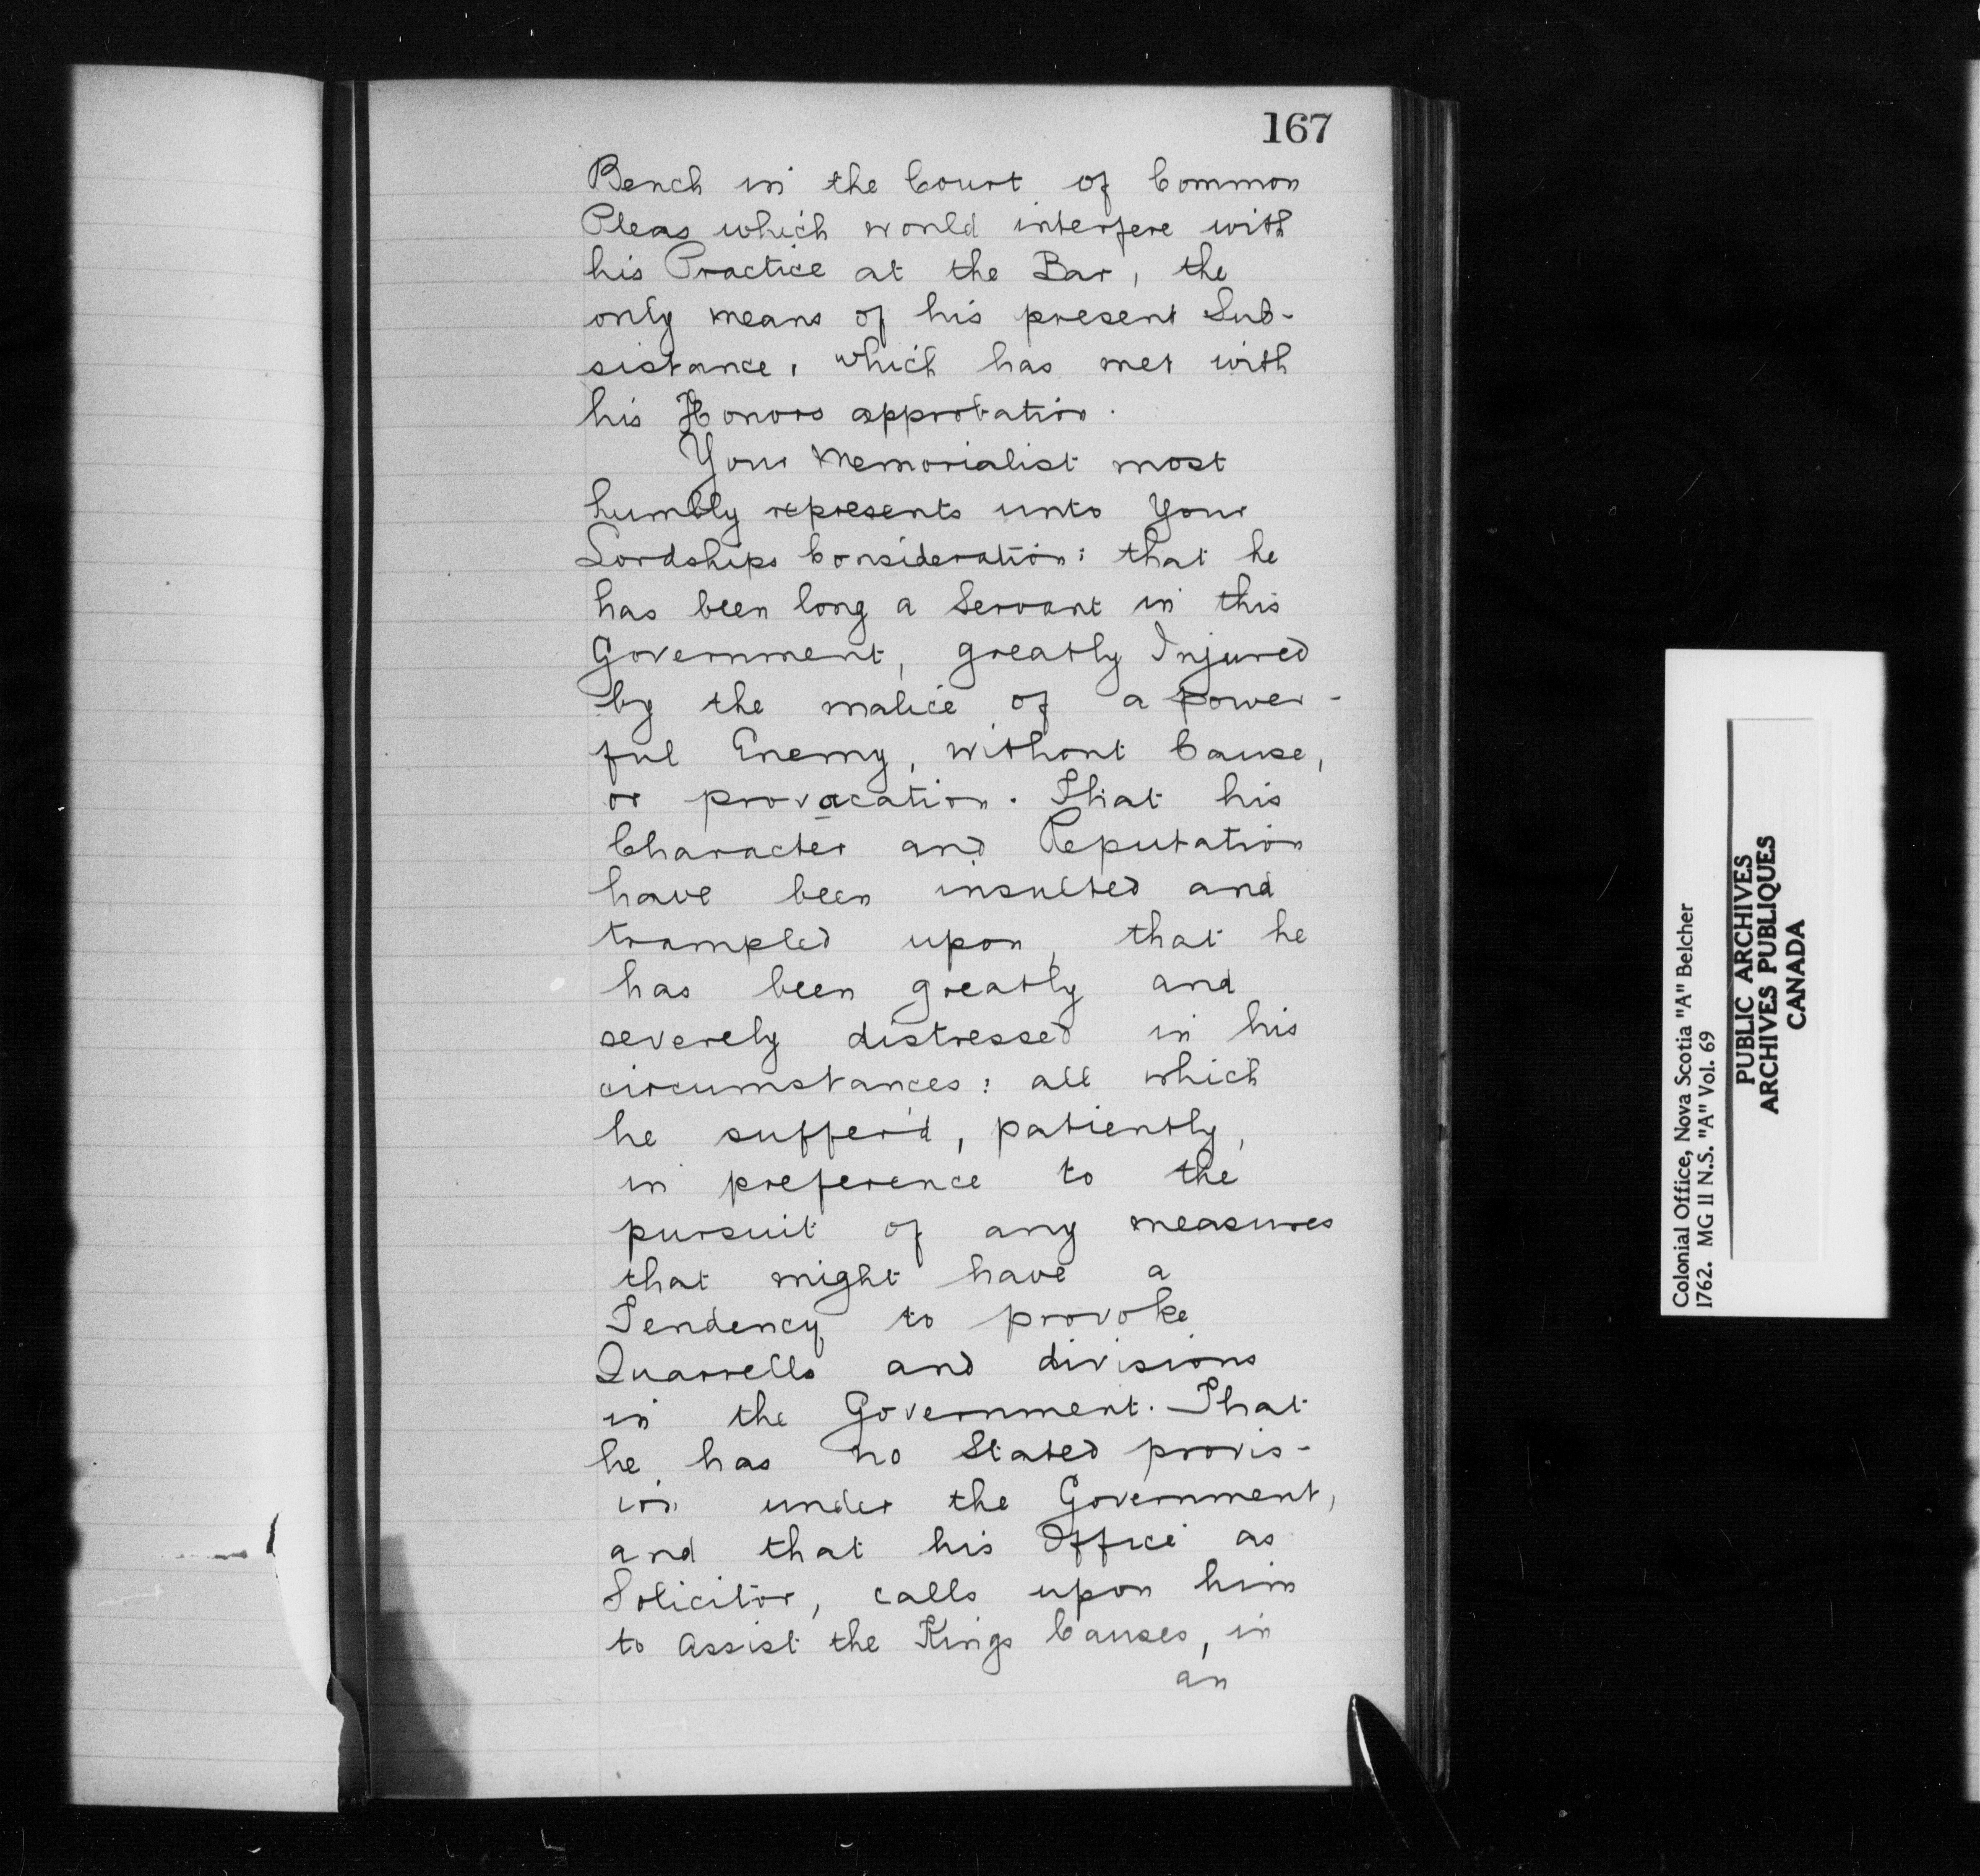 167
Bench in the Court of Common
Pleas which would interfere with
his Practice at the Bar, the
only means of his present Sub-
sistance, which has met with
his Honors approbation.
Your Memorialist most
humbly represents unto Your
Lordships Consideration: that he
has been long a Servant in this
Government, greatly Injured
by the malice of a power-
ful Enemy, without Cause,
or provacation. That his
Character and Reputation
have been insulted and
trampled upon, that he
has been greatly and
severely distressed in his
circumstances: all which
he suffer'd, patiently,
in preference to the
pursuit of any measures
that might have a
Tendency to provoke
Quarrells and divisions
in the Government. That
he has no Stated provis-
ion under the Government,
and that his Office as
Solicitor, calls upon him
to assist the Kings Causes, in
an
Colonial Office, Nova Scotia "A" Belcher
1762. MG 11 N.S. "A" Vol. 69
PUBLIC ARCHIVES
ARCHIVES PUBLIQUES
CANADA